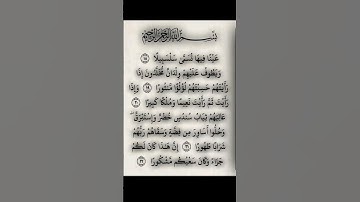 بِسْمِ اللَّهِ الرَّحْمَٰنِ الرَّحِيمِ
عَيْنًا فِيهَا تُسَمَّىٰ سَلْسَبِيلًا ١٨
وَيَطُوفُ عَلَيْهِمْ وِلْدَانٌ مُّخَلَّدُونَ إِذَا
رَأَيْتَهُمْ حَسِبْتَهُمْ لُؤْلُؤًا مَّنثُورًا ١٩ وَإِذَا
رَأَيْتَ ثَمَّ رَأَيْتَ نَعِيمًا وَمُلْكًا كَبِيرًا ٢٠
عَالِيَهُمْ ثِيَابُ سُندُسٍ خُضْرٌ وَإِسْتَبْرَقٌ
وَحُلُّوا أَسَاوِرَ مِن فِضَّةٍ وَسَقَاهُمْ رَبُّهُمْ
شَرَابًا طَهُورًا ٢١ إِنَّ هَٰذَا كَانَ لَكُمْ
جَزَاءً وَكَانَ سَعْيُكُم مَّشْكُورًا ٢٢